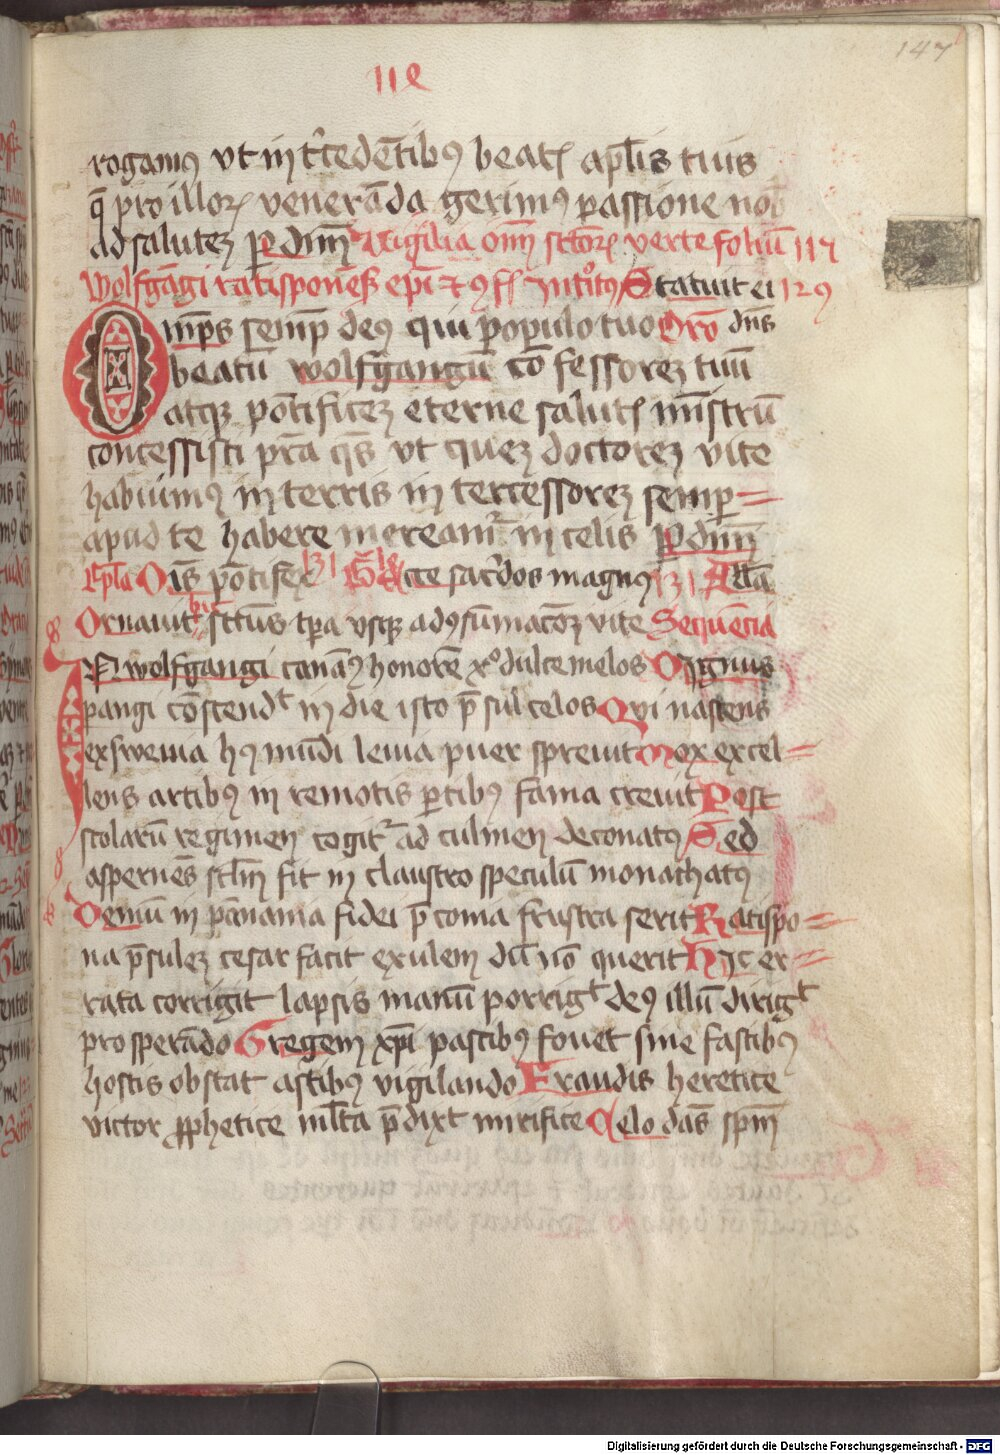 147
118
rogamꝯ vt intᷓcedētibꝯ beatꝭ apl̄is tuis
q̄ pro illoꝝ venerāda gerimꝯ ꝑassione nob
ad salutēꝫ ꝑ dn̄m Vigilia om̄ sctoꝝ verte foliū 117
Wolfgāgi ratisponēsꝭ ep̄i ⁊ ꝯfꝭ Introitꝯ Statuit ei 129
Om̄ps semꝑ deꝯ qui ꝓ populo tuo Oro dn̄s
beatū wolfgangū cō fessoreꝫ tuū
atqꝫ pōtificeꝫ eterne salutꝭ mīstrū
concessisti p̄ta qs̄ vt queꝫ doctoreꝫ vite
habuimꝯ in terris in tercessoreꝫ semꝑ
apud te habere mereamᷣ in celis ꝑ dn̄m
Ep̄la Oīs pōtifex 131 Gͣle Ecce sac᷑dos magnꝯ 131 Alla
Ornauit hic sctūs tꝑa vsqꝫ ad ꝯsumacōꝫ vite Sequēcia
In wolfgangi canāꝰ honorē xᵒ dulce melos Dignus
pangi cōscendꝭ in die isto p̄sul celos Qvi nascens
exswenia hꝯ mūdi leuia puer spreuit Mox excel
lens artibꝯ in remotis ꝑtibꝯ fama creuit Post
scolarū regimen cogitᷣ ad culmen deconatꝯ Sed
aspernēs sclm̄ fit in claustro speculū monachatꝯ
Demū in pānania fidei p̄conia frustra serit Ratispo
na p̄suleꝫ cesar facit exulem dū nō querit Hic er
rata corrigit lapsis manū porrigᵗ deꝯ illū dirigᵗ
prosperādo Gregem xp̄i pascibꝯ fouet sine fastibꝯ
hostis obstat astibꝯ vigilando Fraudis heretice
victor ꝓphetice ml̄ta p̄dixᵗ mirifice Celo dās spm̄
Digitalisierung gefördert durch die Deutsche Forschungsgemeinschaft - DFG